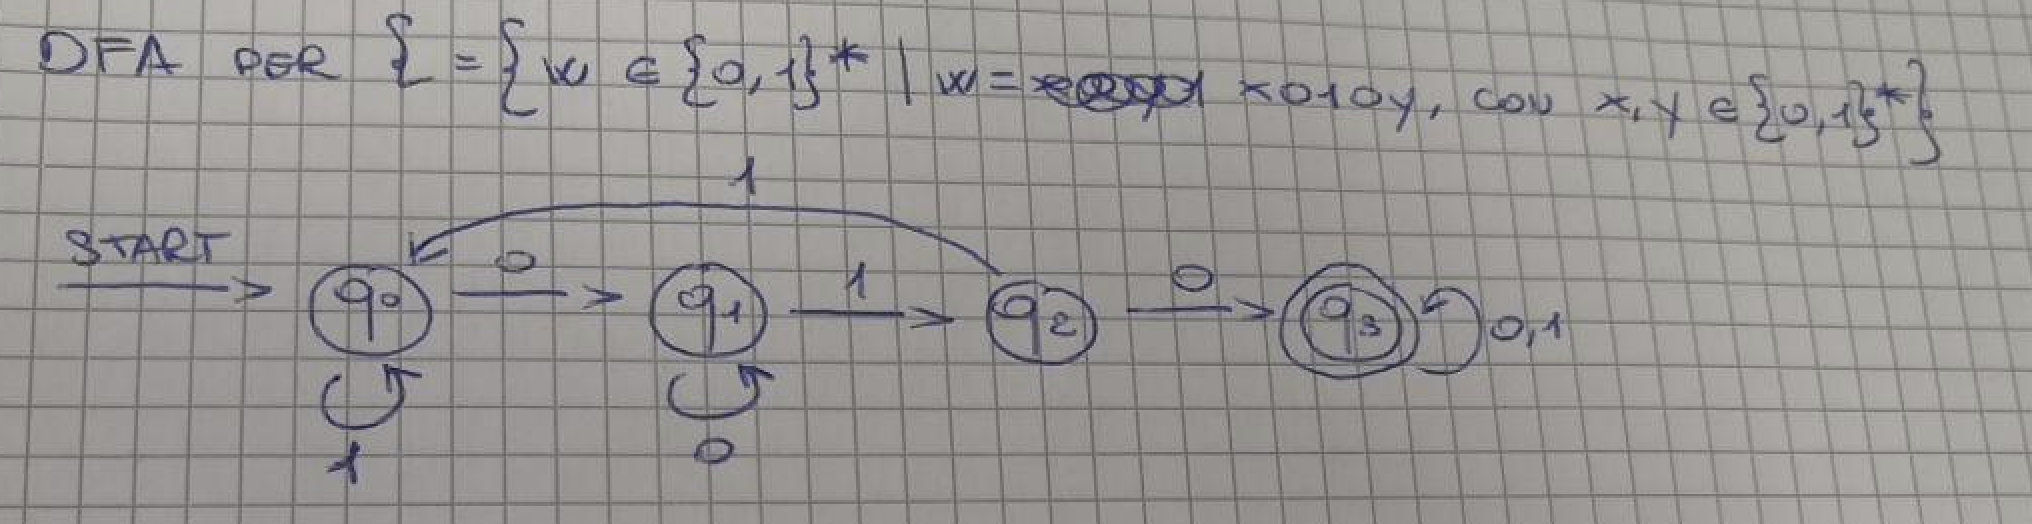 DFA PER L = {w ∈ {0,1}* | w = x010y, con x,y ∈ {0,1}*}
1
START 0 1 0
q0 q1 q2 q3 0,1
1 0